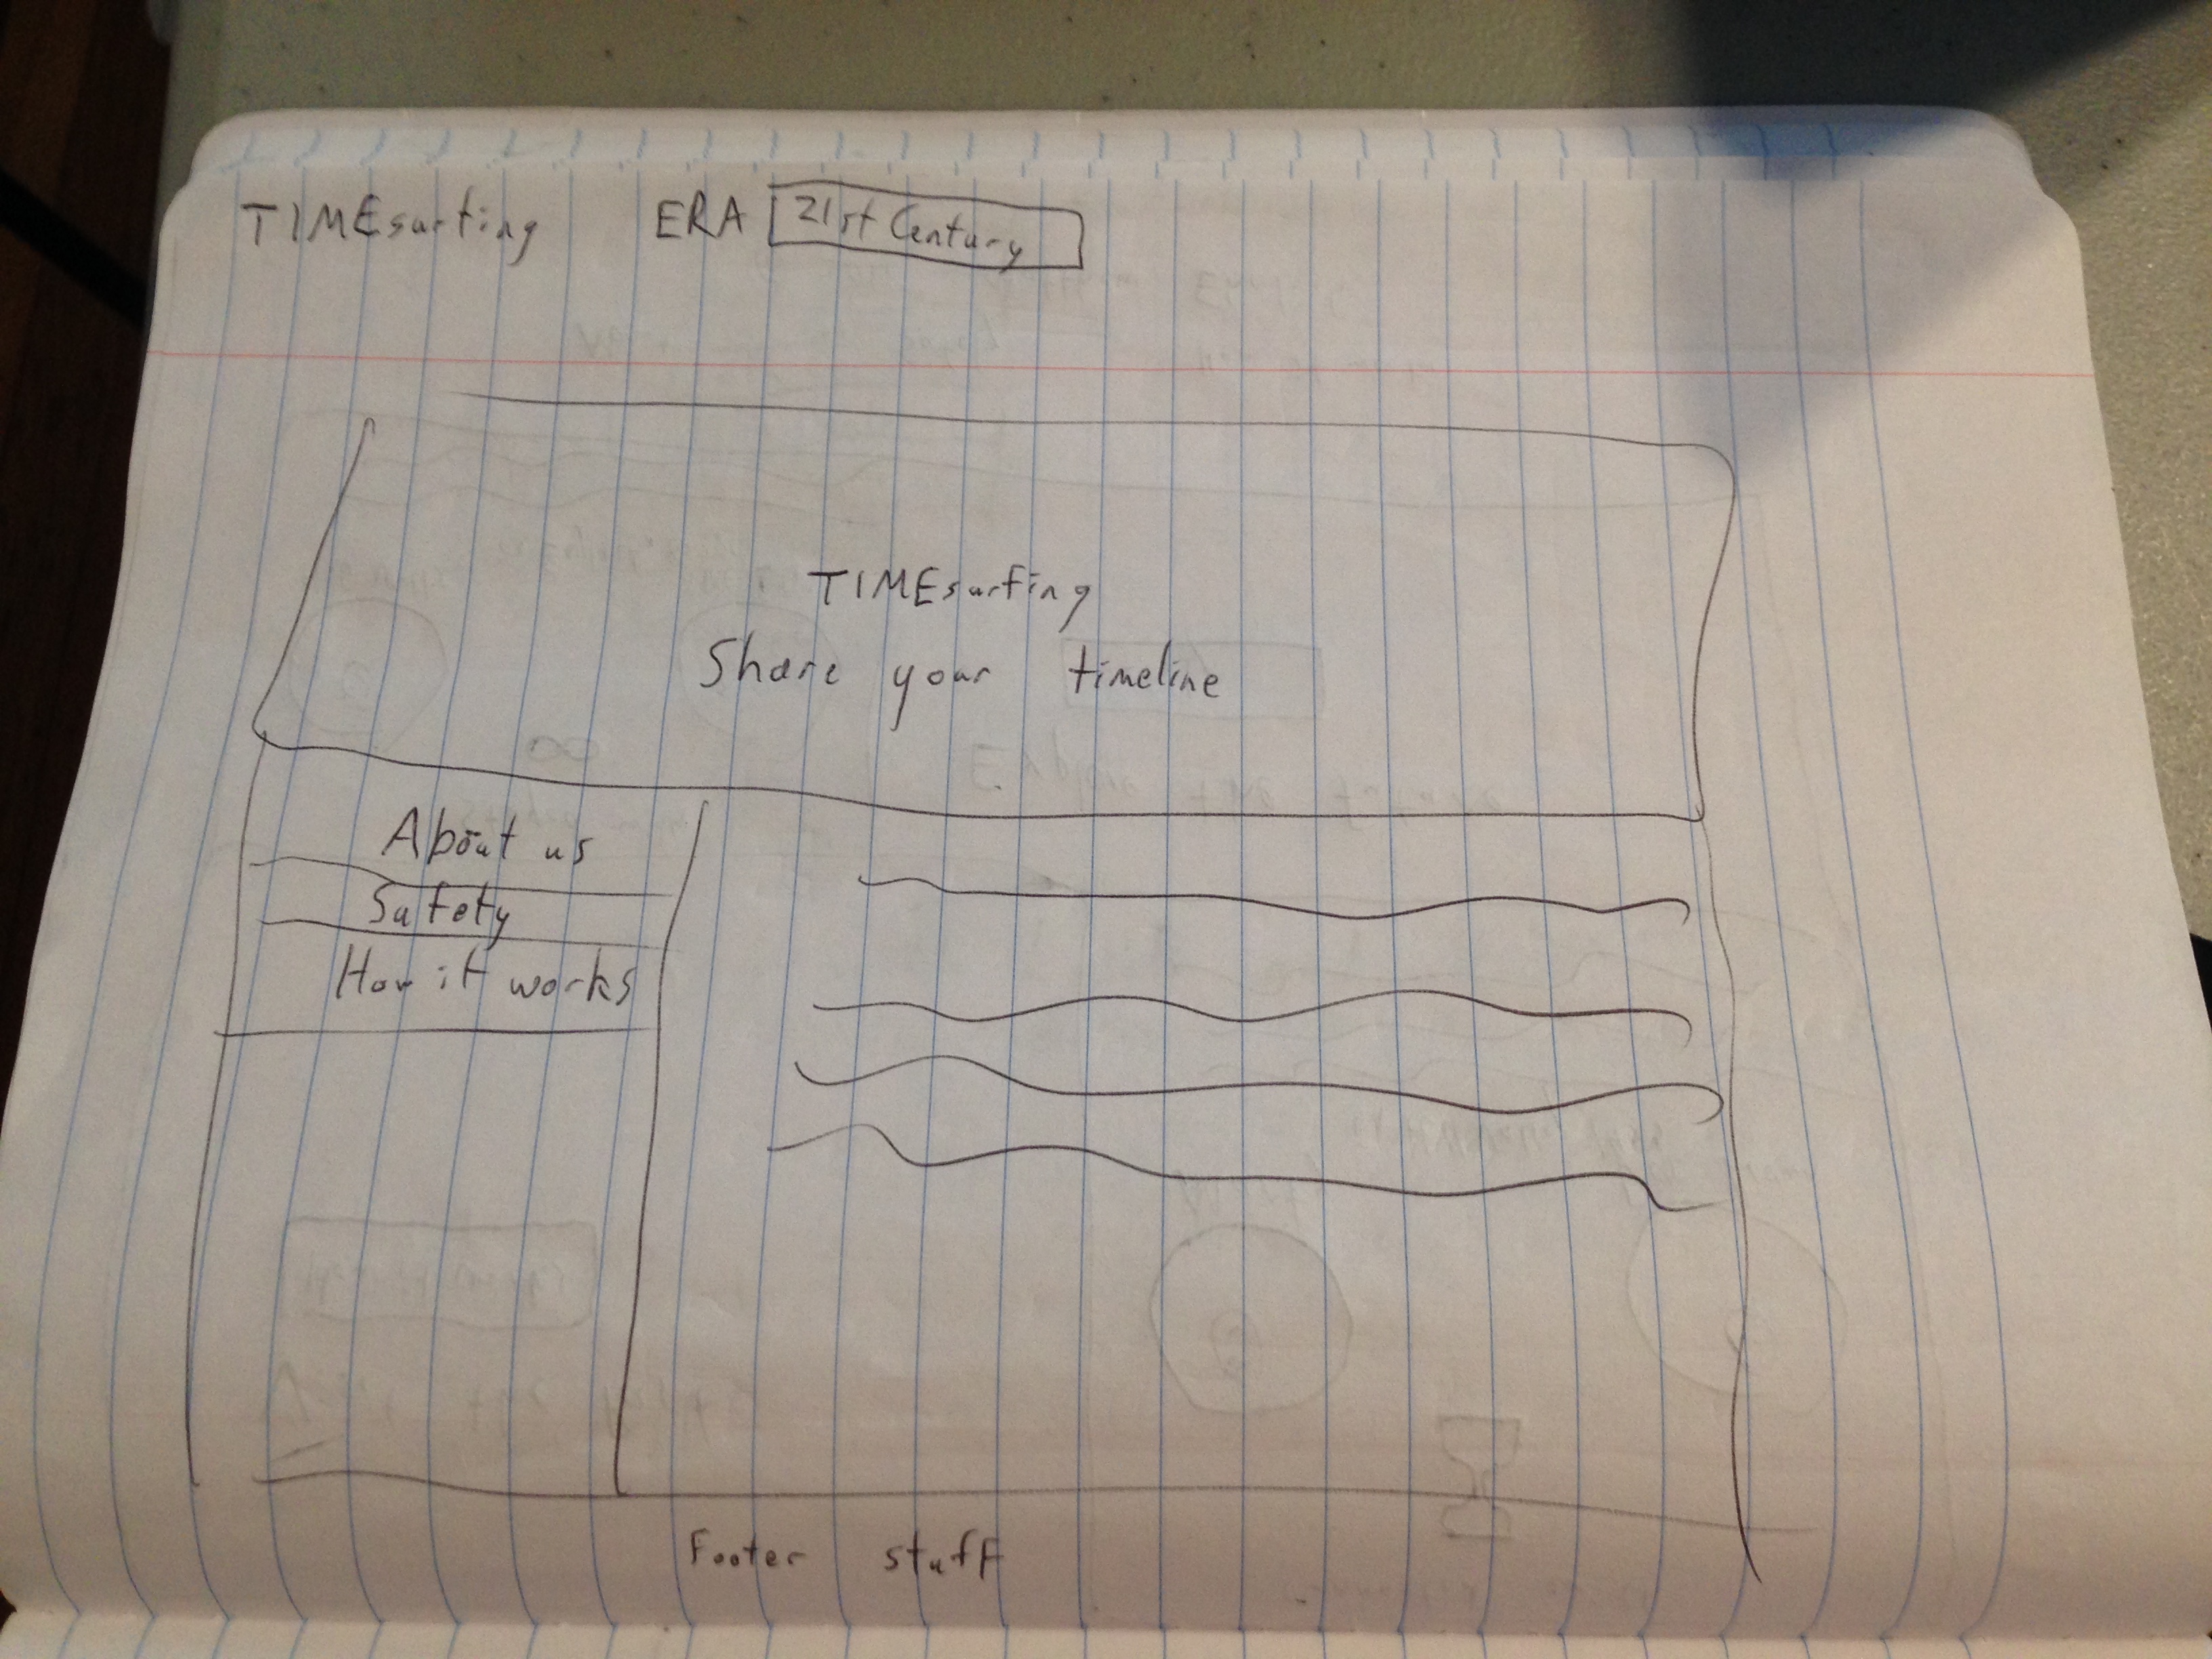 TIMEsurfing ERA 21st Century
TIMEsurfing
Share your timeline
About us
Safety
How it works
Footer stuff